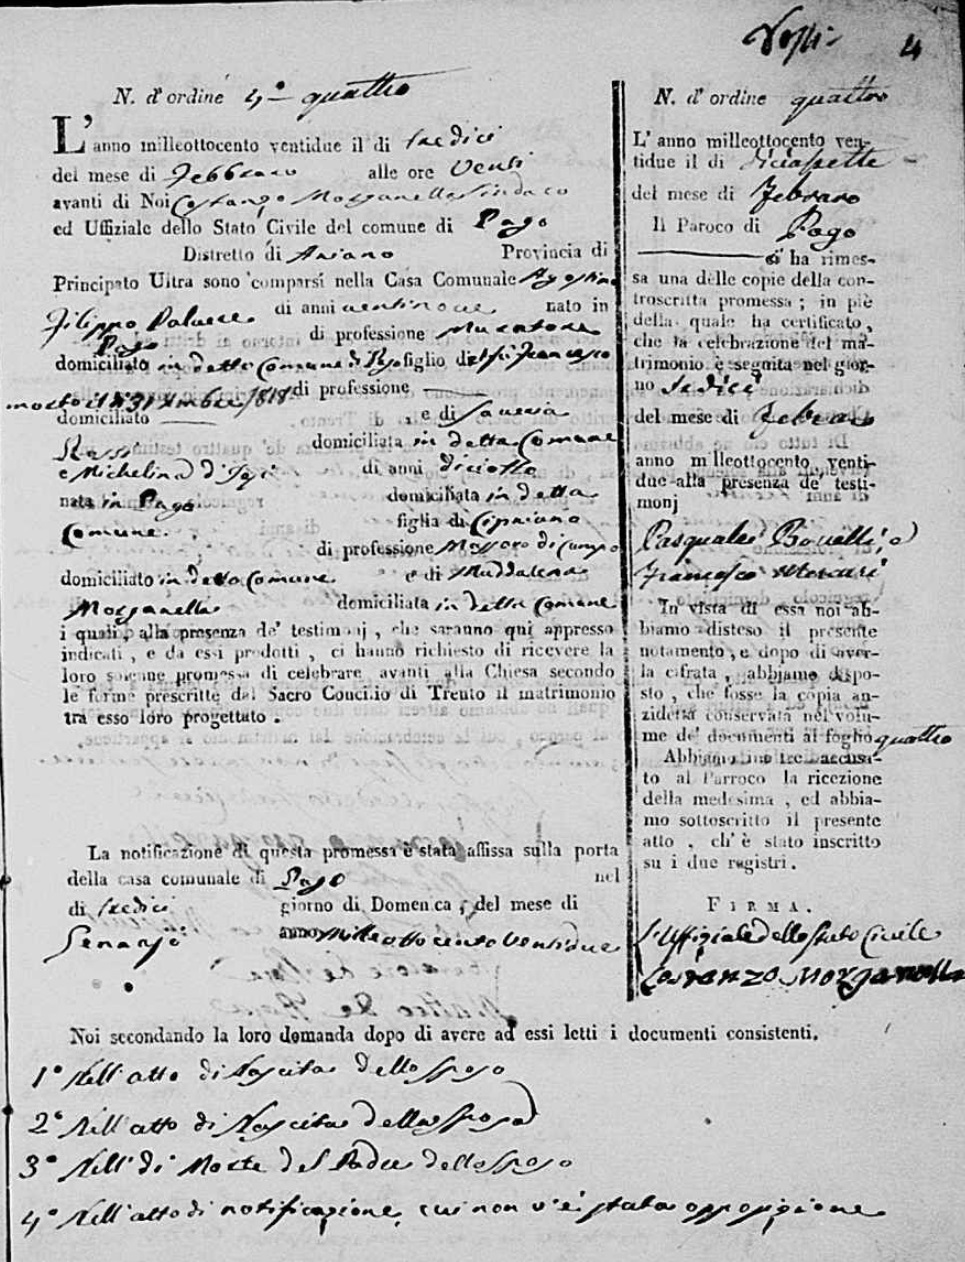 4
N. d'ordine 4° quattro
L'anno milleottocento ventidue il dì tredici
del mese di Febbraro alle ore Venti
avanti di Noi Costanzo Morganella Sindaco
ed Uffiziale dello Stato Civile del comune di Pago
Distretto di Ariano Provincia di
Principato Ultra sono comparsi nella Casa Comunale Agostino
Filippo di anni ventinove nato in
Pago di professione
domiciliato in detta Comune di Pago figlio del fù Francesco
morto il 31 1818 di professione —
domiciliato — e di
Rossi domiciliata in detta Comune
e Michelina di anni diciotto
nata in Pago domiciliata in detta
Comune figlia di Cipriano
di professione Massaro di Campo
domiciliato in detta Comune e di Maddalena
Morganella domiciliata in detta Comune
i quali, alla presenza de' testimonj, che saranno qui appresso
indicati, e da essi prodotti, ci hanno richiesto di ricevere la
loro solenne promessa di celebrare avanti alla Chiesa secondo
le forme prescritte dal Sacro Concilio di Trento il matrimonio
tra esso loro progettato.
La notificazione di questa promessa è stata affissa sulla porta
della casa comunale di Pago nel
dì tredici giorno di Domenica, del mese di
Genaro anno mille otto cento Ventidue
N. d'ordine quattro
L'anno milleottocento ven-
tidue il dì diciassette
del mese di Febraro
Il Paroco di Pago
— ci ha rimes-
sa una delle copie della con-
troscritta promessa; in piè
della quale ha certificato,
che la celebrazione del ma-
trimonio è seguita nel gior-
no Sedici
del mese di Febraro
anno milleottocento venti-
due alla presenza de' testi-
monj
Pasquale
Francesco Mercuri
In vista di essa noi ab-
biamo disteso il presente
notamento, e dopo di aver-
la cifrata, abbiamo dispo-
sto, che fosse la copia an-
zidetta conservata nel volu-
me de' documenti al foglio quattro
Abbiamo inoltre accusa-
to al Parroco la ricezione
della medesima, ed abbia-
mo sottoscritto il presente
atto, ch'è stato inscritto
su i due registri.
FIRMA.
L'Uffiziale dello Stato Civile
Costanzo Morganella
Noi secondando la loro domanda dopo di avere ad essi letti i documenti consistenti.
1° Nell'atto di Nascita dello sposo
2° Nell'atto di Nascita della sposa
3° Nell' di Morte del Padre dello sposo
4° Nell'atto di notificazione, cui non v'è stata opposizione